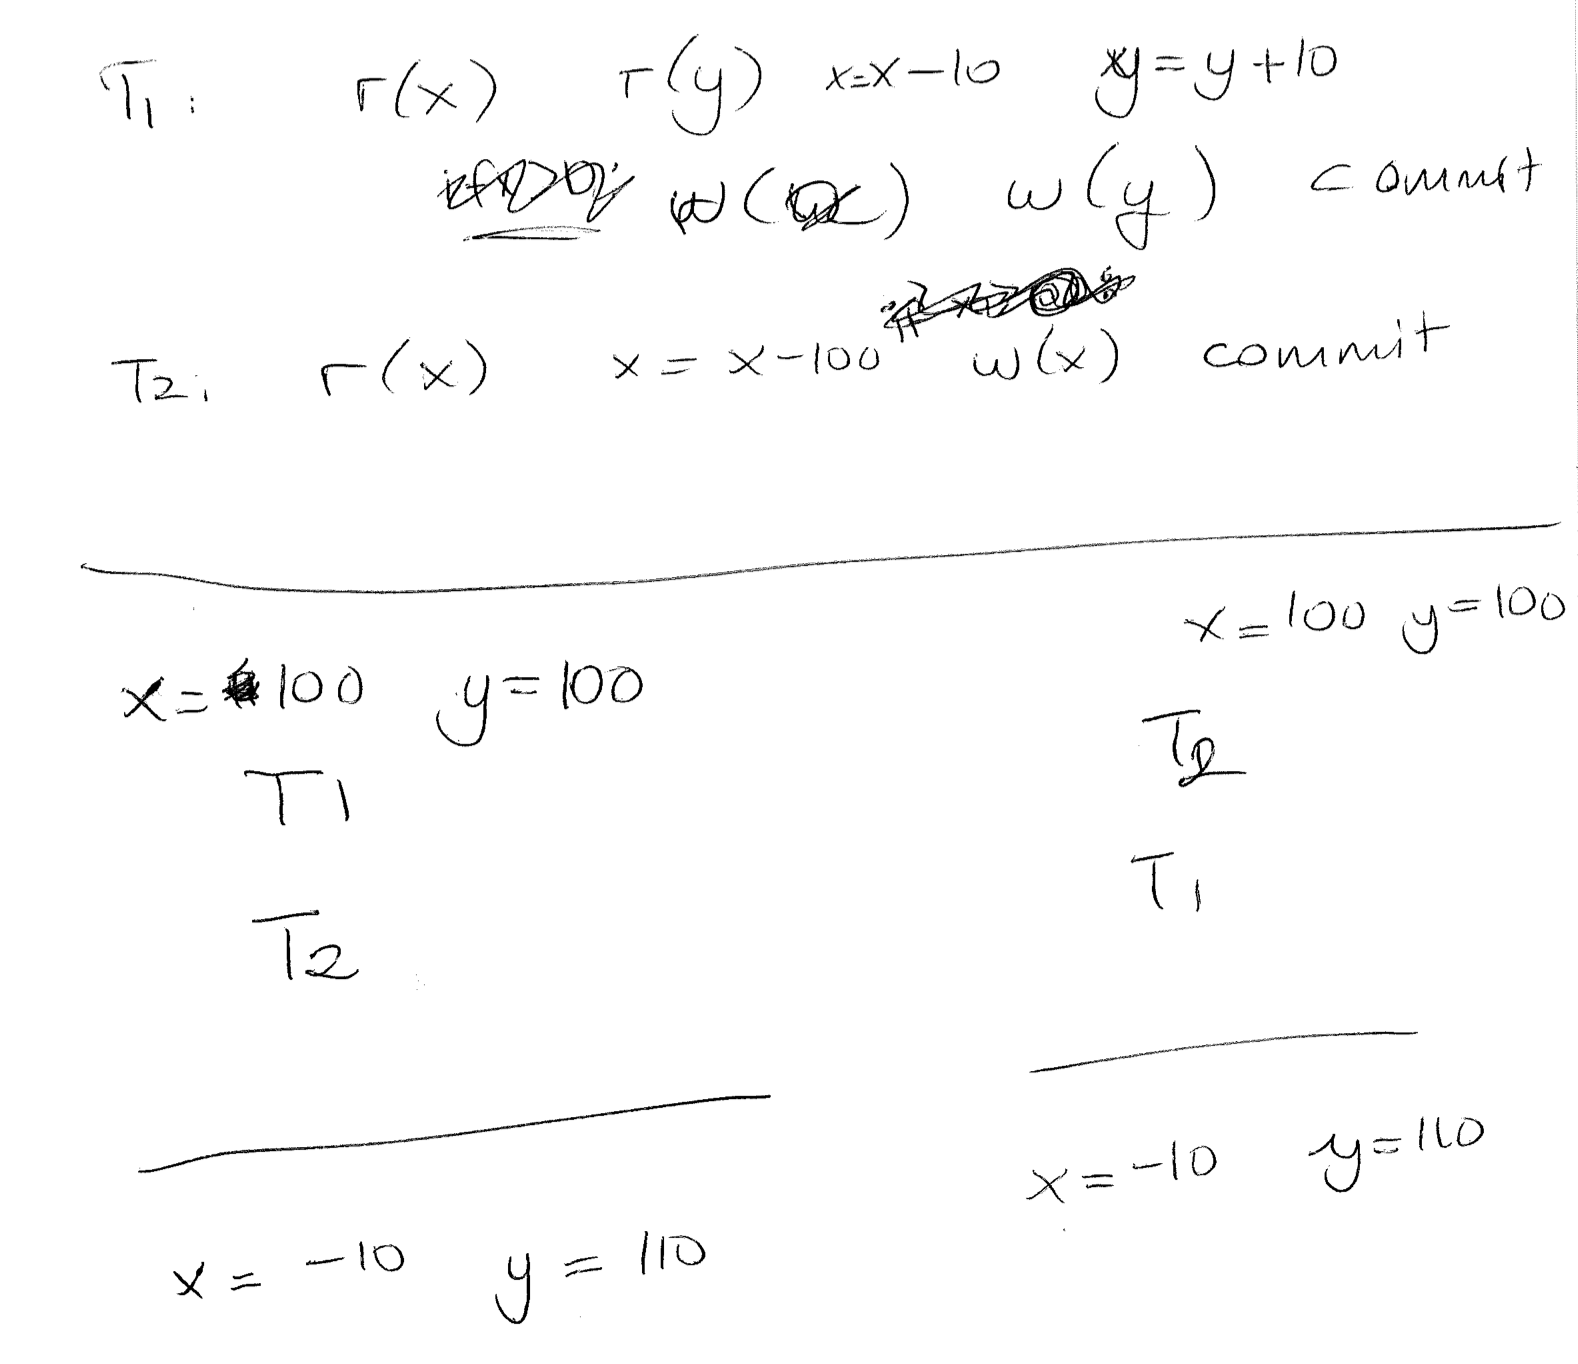 T1: r(x) r(y) x=x-10 y=y+10
w(x) w(y) commit
T2: r(x) x = x-100 w(x) commit
x=100 y=100
T1
T2
x = -10 y = 110
x=100 y=100
T2
T1
x = -10 y=110